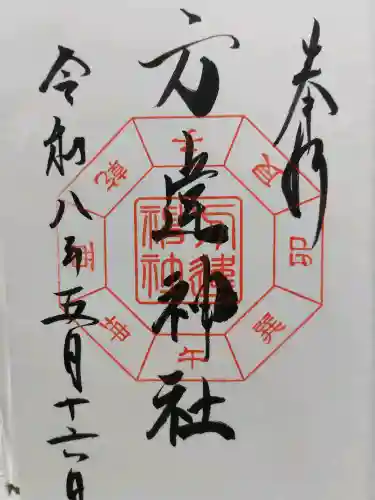 奉拝
方違神社
令和八年五月十六日
方違
神社
艮
卯
巽
午
坤
酉
乾